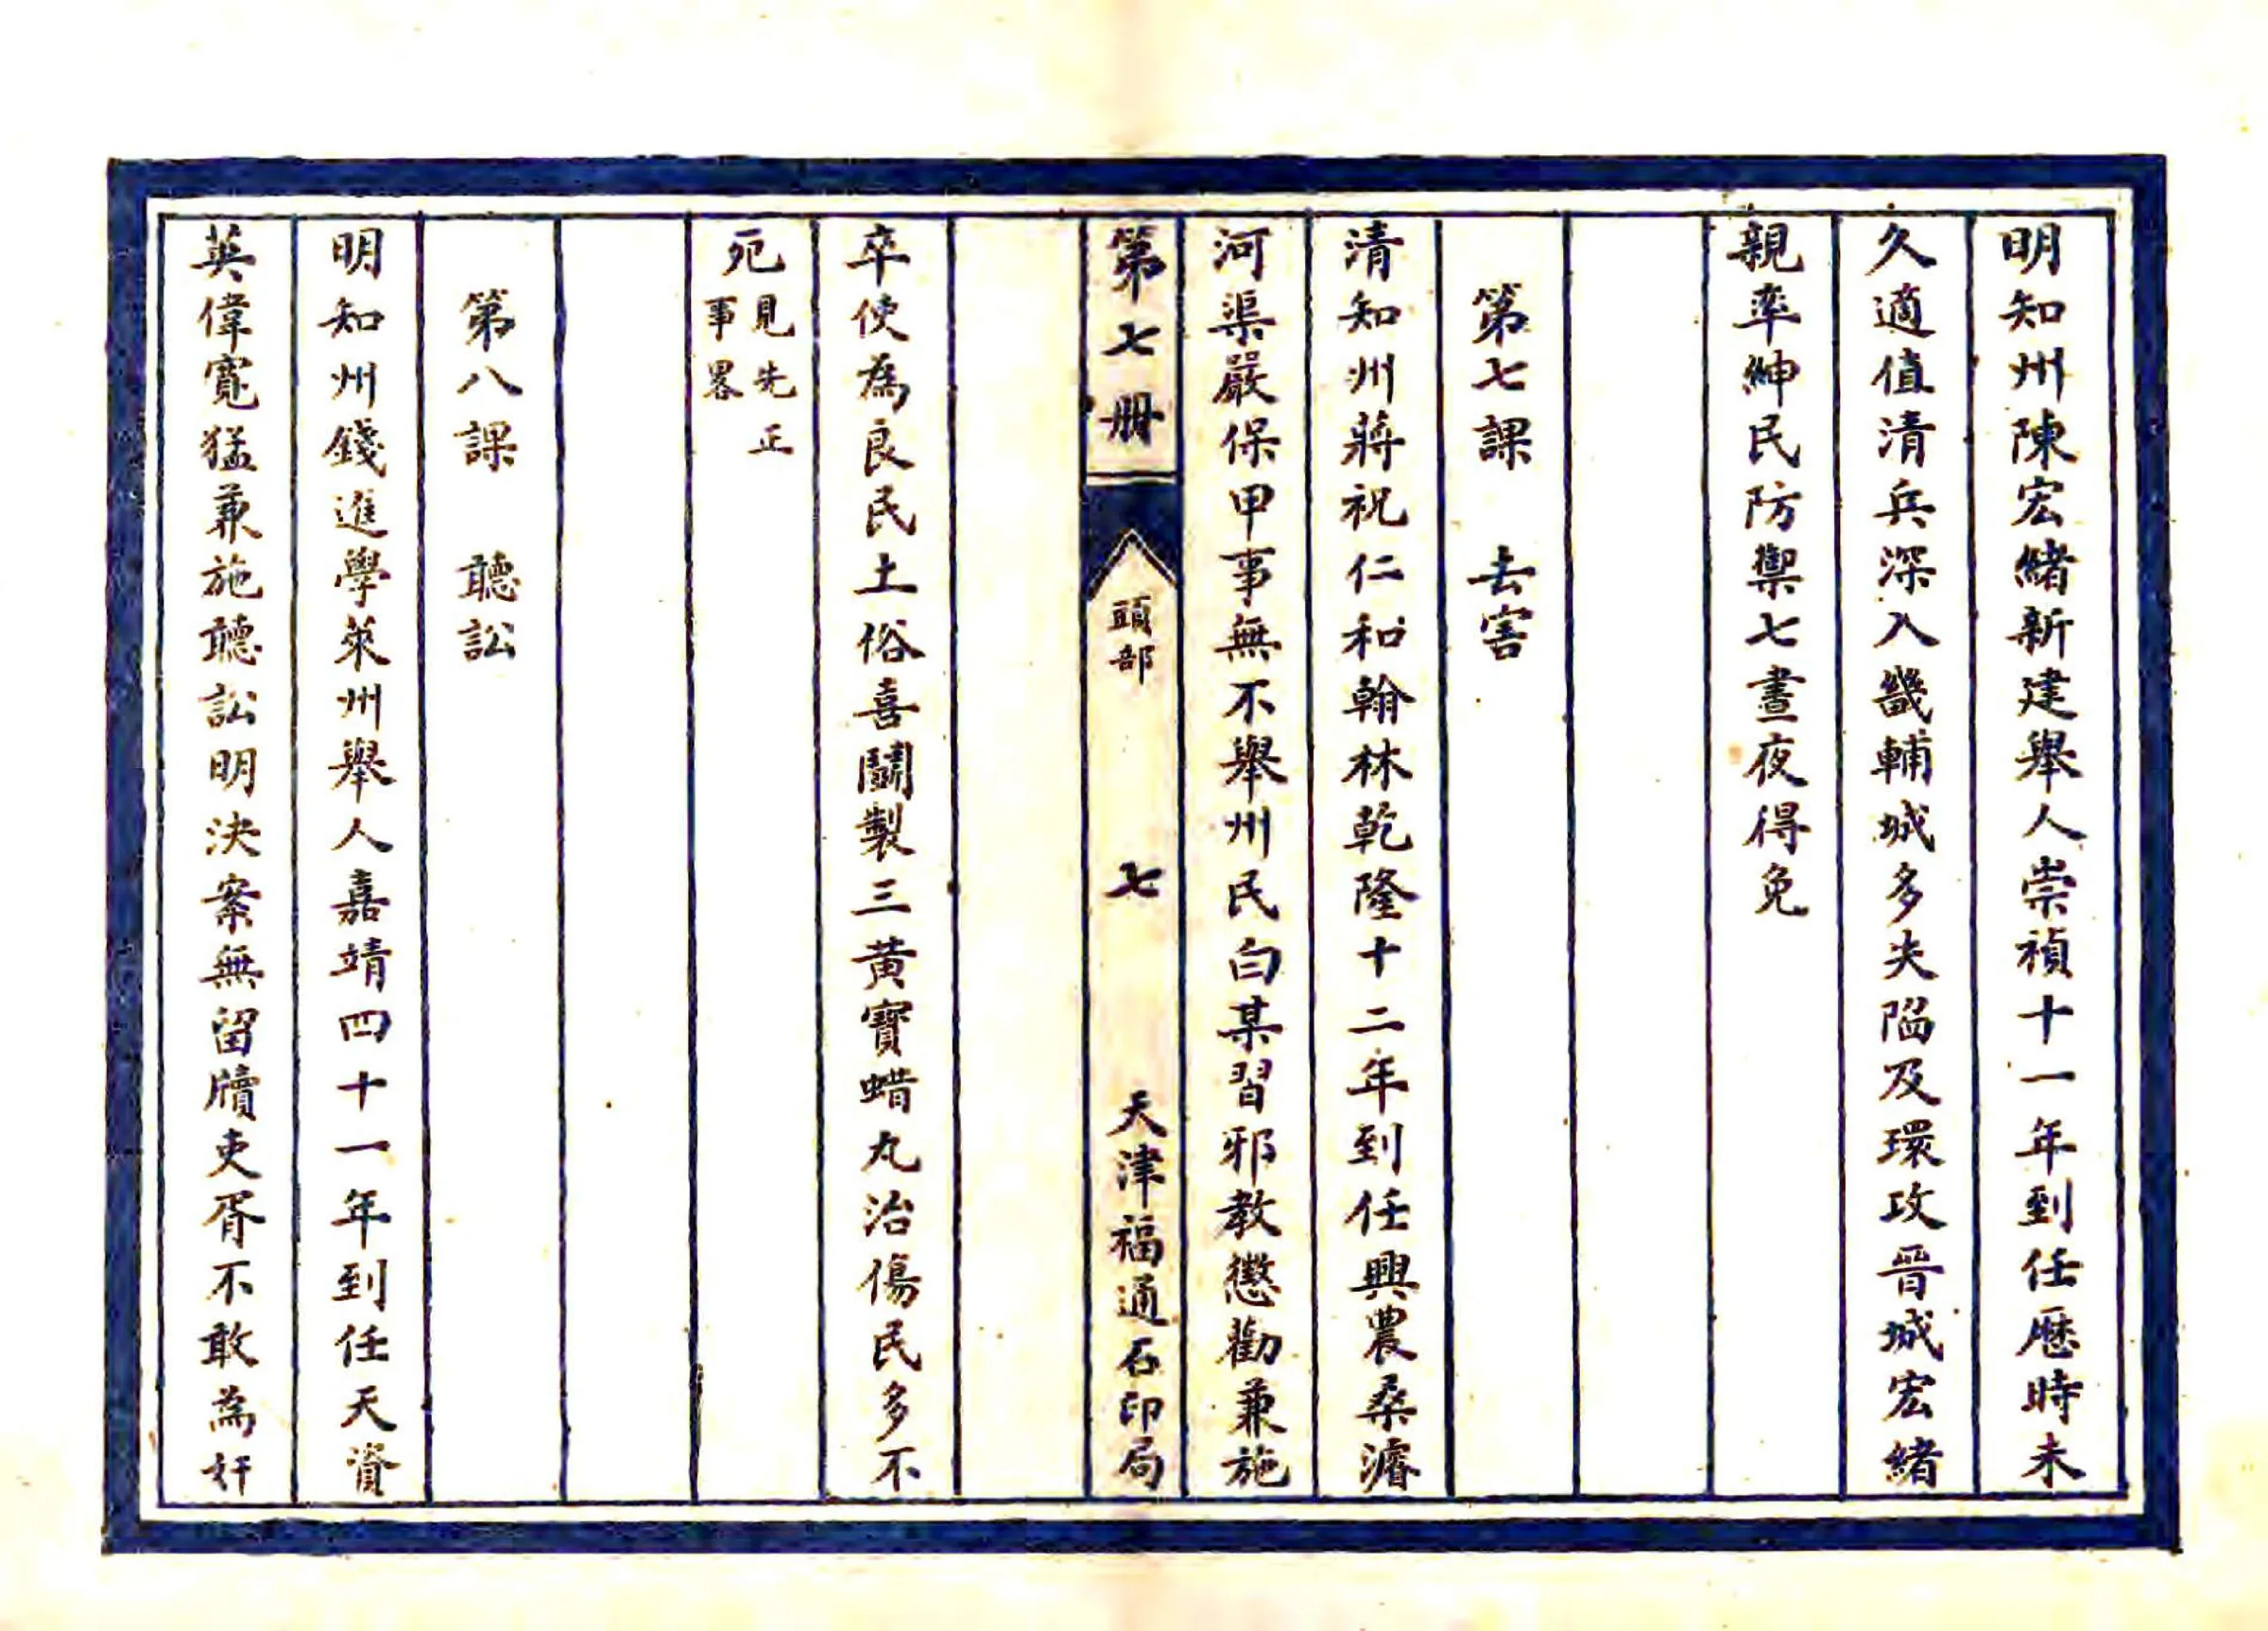 明知州陳宏緒新建舉人崇禎十一年到任歷時未
久適值清兵深入畿輔城多失陷及環攻晉城宏緒
親率紳民防禦七晝夜得免
第七課 去害
清知州蔣祝仁和翰林乾隆十二年到任興農桑濬
河渠嚴保甲事無不舉州民白某習邪教懲勸兼施
第七册 頭部 七 天津福通石印局
卒使為良民土俗喜鬭製三黃寶蜡丸治傷民多不
死見先正事畧
第八課 聽訟
明知州錢進學萊州舉人嘉靖四十一年到任天資
英偉寬猛兼施聽訟明決案無留牘吏胥不敢為奸